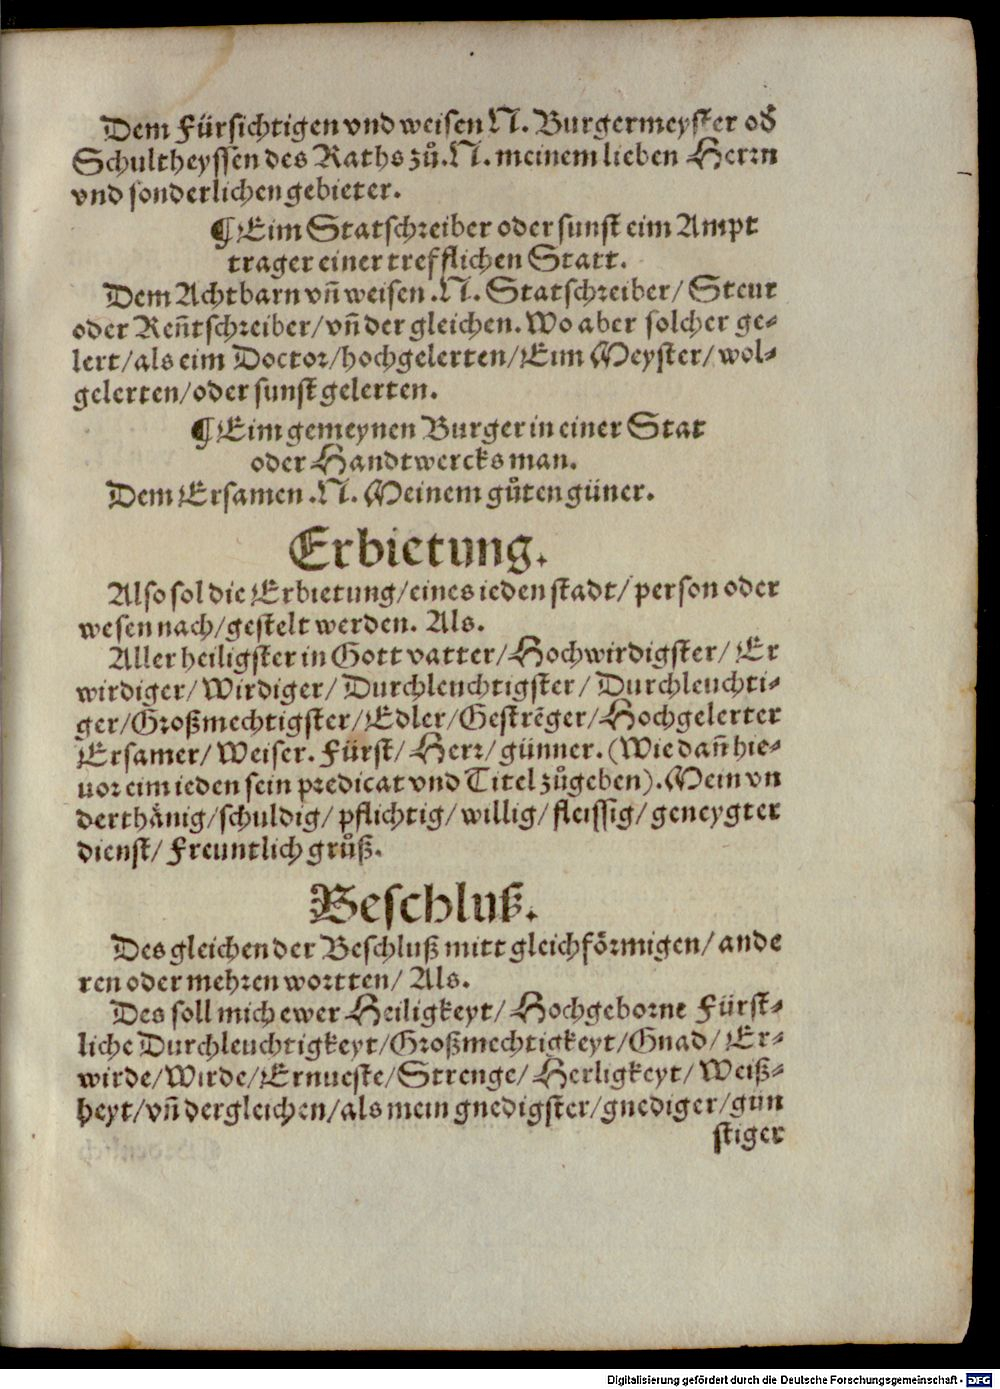 Dem Fürsichtigen vnd weisen N. Burgermeyster od̕
Schultheyssen des Raths zů .N. meinem lieben Herrn
vnd sonderlichen gebieter.
¶ Eim Statschreiber oder sunst eim Ampt
trager einer trefflichen Statt.
Dem Achtbarn vn̄ weisen .N. Statschreiber/ Steur
oder Ren̄tschreiber/ vn̄ der gleichen. Wo aber solcher ge⸗
lert/ als eim Doctor/ hochgelerten/ Eim Meyster/ wol⸗
gelerten/ oder sunst gelerten.
¶ Eim gemeynen Burger in einer Stat
oder Handtwercks man.
Dem Ersamen .N. Meinem gůten güner.
Erbietung.
Also sol die Erbietung/ eines ieden stadt/ person oder
wesen nach/ gestelt werden. Als.
Aller heiligster in Gott vatter/ Hochwirdigster/ Er
wirdiger/ Wirdiger/ Durchleuchtigster/ Durchleuchti⸗
ger/ Großmechtigster/ Edler/ Gestrēger/ Hochgelerter
Ersamer/ Weiser. Fürst/ Herr/ günner. (Wie dan̄ hie⸗
uor eim ieden sein predicat vnd Titel zůgeben). Mein vn
derthånig/ schuldig/ pflichtig/ willig/ fleissig/ geneygter
dienst/ Freuntlich grůß.
Beschluß.
Des gleichen der Beschluß mitt gleichförmigen/ ande
ren oder mehren wortten/ Als.
Des soll mich ewer Heiligkeyt/ Hochgeborne Fürst⸗
liche Durchleuchtigkeyt/ Großmechtigkeyt/ Gnad/ Er⸗
wirde/ Wirde/ Ernueste/ Strenge/ Herligkeyt/ Weiß⸗
heyt/ vn̄ dergleichen/ als mein gnedigster/ gnediger/ gün
stiger
Digitalisierung gefördert durch die Deutsche Forschungsgemeinschaft - DFG